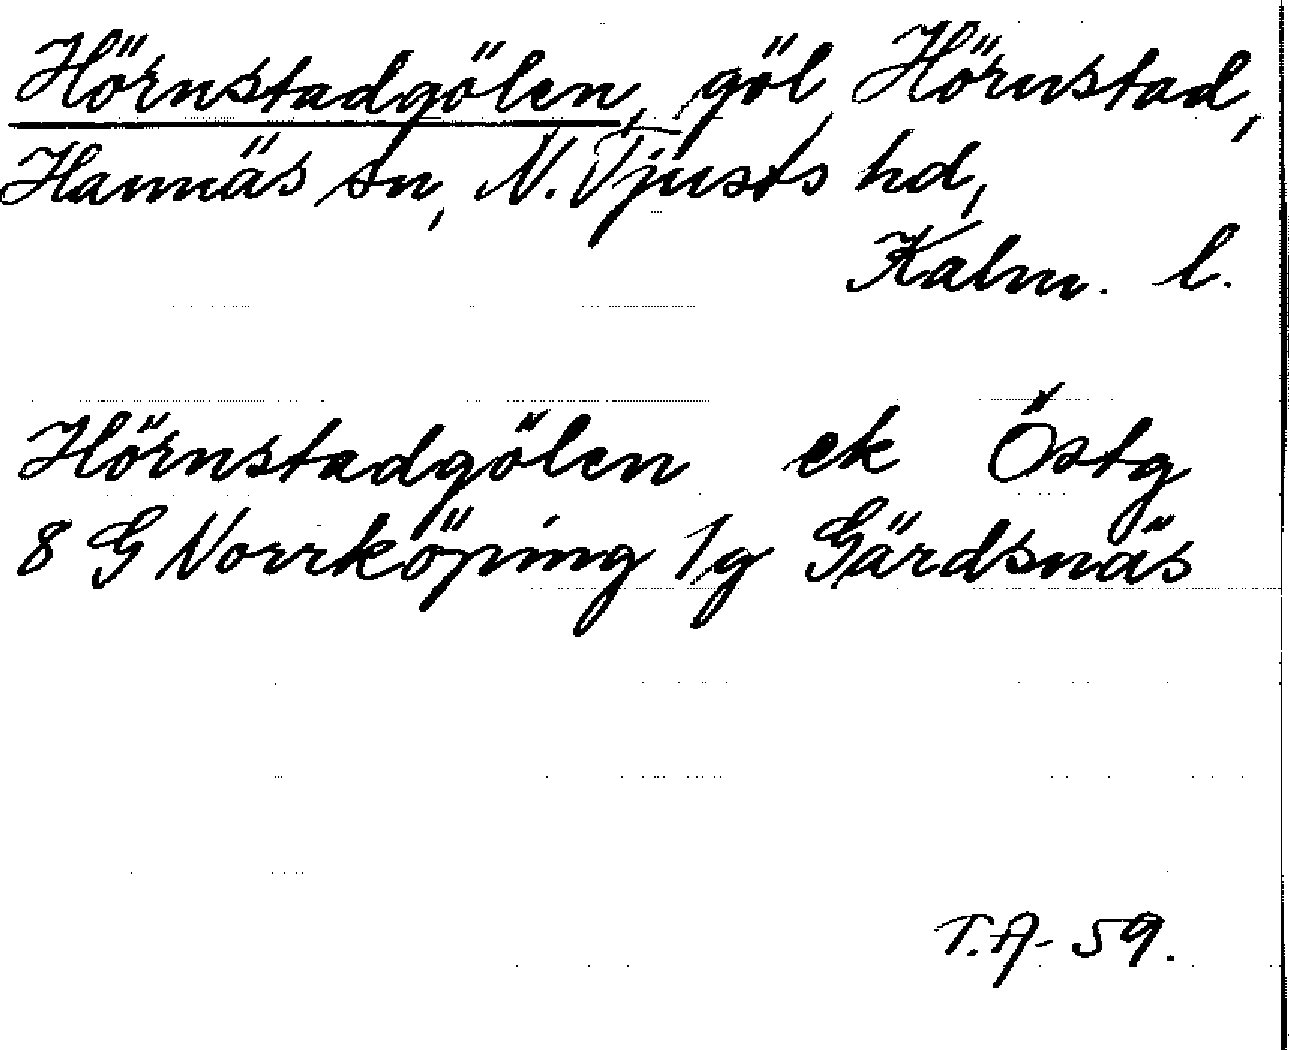 Hörnstadgölen, göl, Hörnstad,
Hannäs sn, N. Tjusts hd,
Kalm. l.
Hörnstadgölen ek Östg
8 G Norrköping 1g Gärdsnäs
T.A-59.